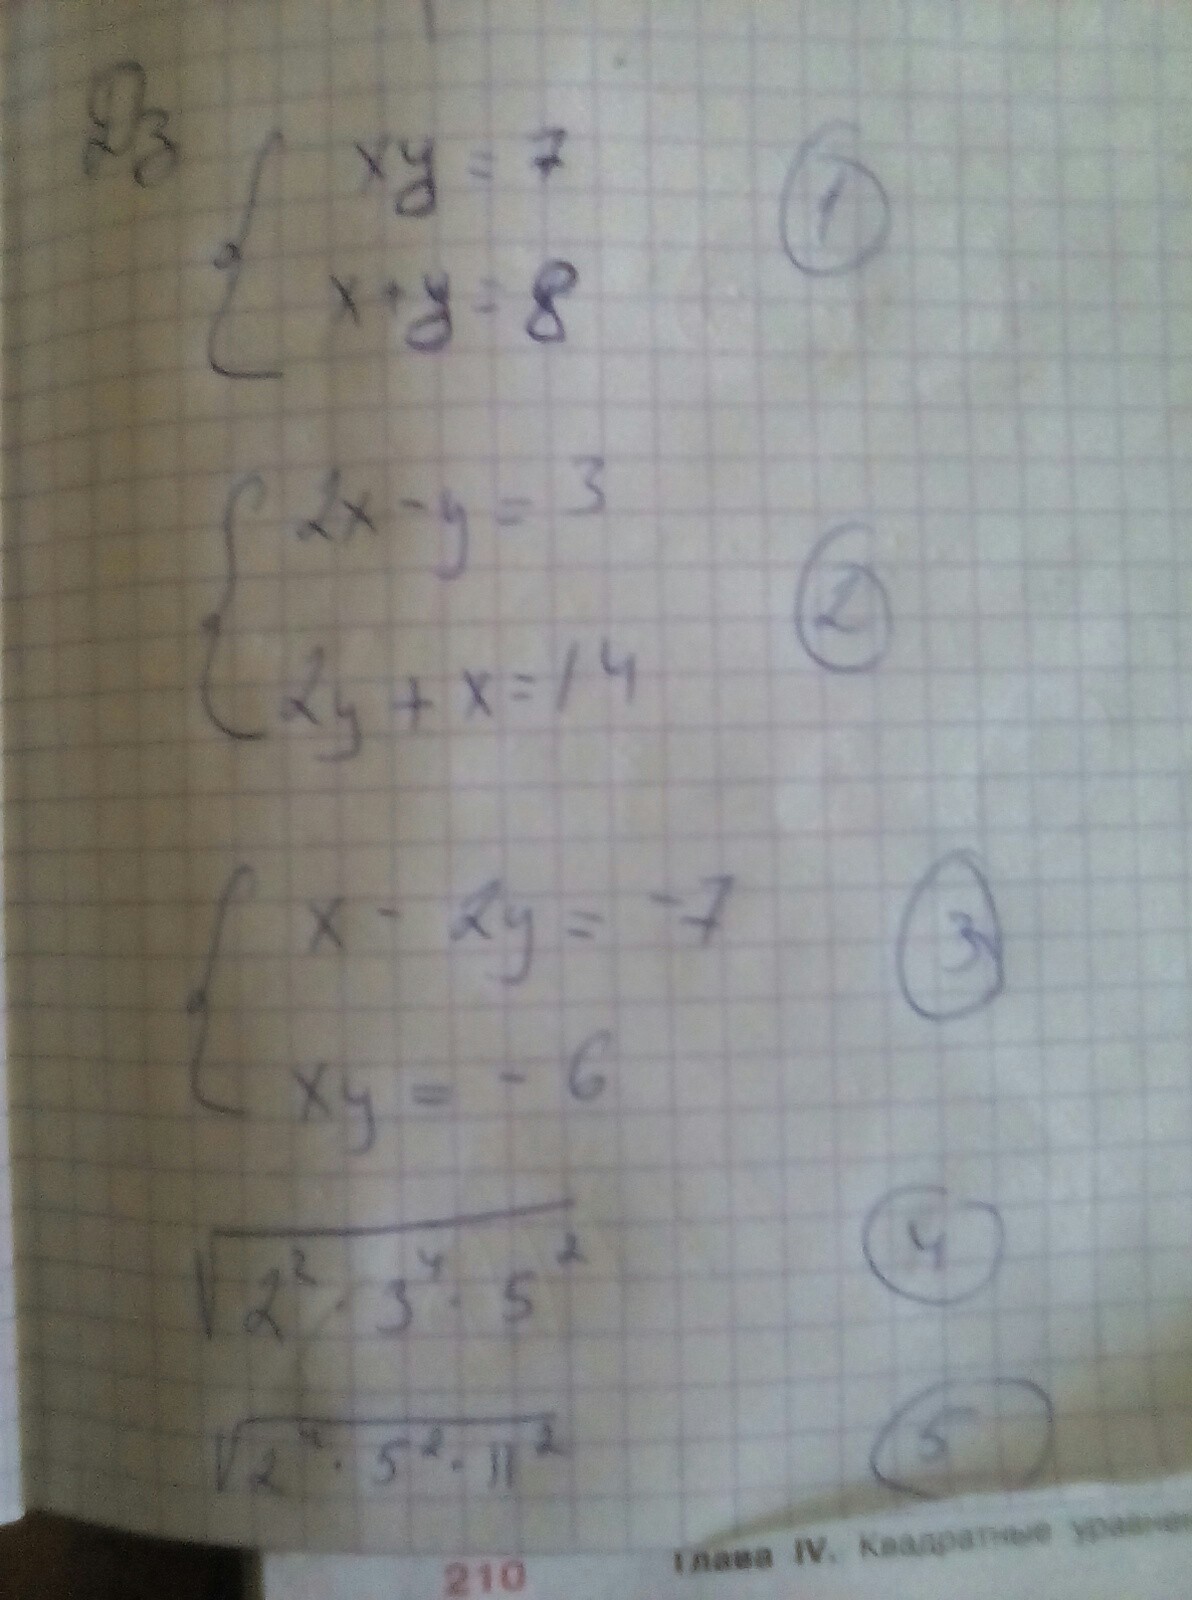 Дз
xy = 7 1
x + y = 8
2x - y = 3
2
2y + x = 14
x - 2y = -7 3
xy = - 6
√2² · 3⁴ · 5² 4
√2⁴ · 5² · 11² 5
210 Глава IV. Квадратные